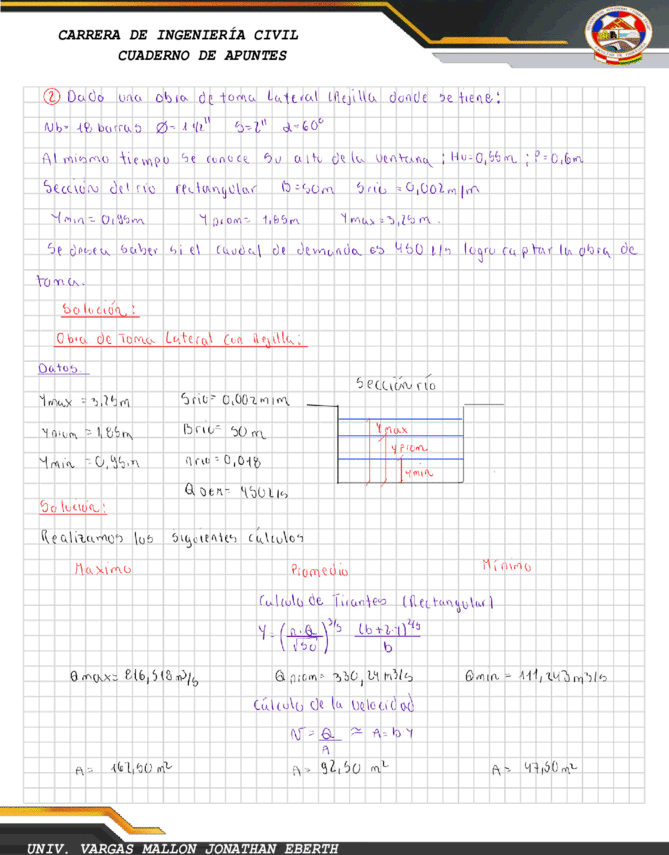 CARRERA DE INGENIERÍA CIVIL
CUADERNO DE APUNTES
② Dado una obra de toma Lateral (Rejilla donde se tiene:
Nb= 18 barras Ø= 1 1/2" S=2" α=60°
Al mismo tiempo se conoce su alto de la ventana ; Hv=0,55m ; P=0,6m
Sección del río rectangular B=50m Srio=0,002m/m
Ymin= 0,95m Yprom= 1,85m Ymax=3,25m.
Se desea saber si el caudal de demanda es 450 L/s logra captar la obra de
toma.
Solución:
Obra de Toma Lateral con Rejilla:
Datos
Sección río
Ymax = 3,25m Srio= 0,002m/m
Yprom = 1,85m Brio= 50m
Ymin = 0,95m nrio= 0,018
QDEM= 450L/s
Ymax
Yprom
Ymin
Solución:
Realizamos los siguientes cálculos
Maximo Promedio Mínimo
Calculo de Tirantes (Rectangular)
Y= (n·Q/√So)^3/5 (b+2·Y)^2/5/b
Qmax= 816,518m³/s Qprom= 330,24m³/s Qmin = 111,243m³/s
Cálculo de la velocidad
V= Q/A ≃ A= b Y
A= 162,50m² A= 92,50 m² A= 47,50m²
UNIV. VARGAS MALLON JONATHAN EBERTH